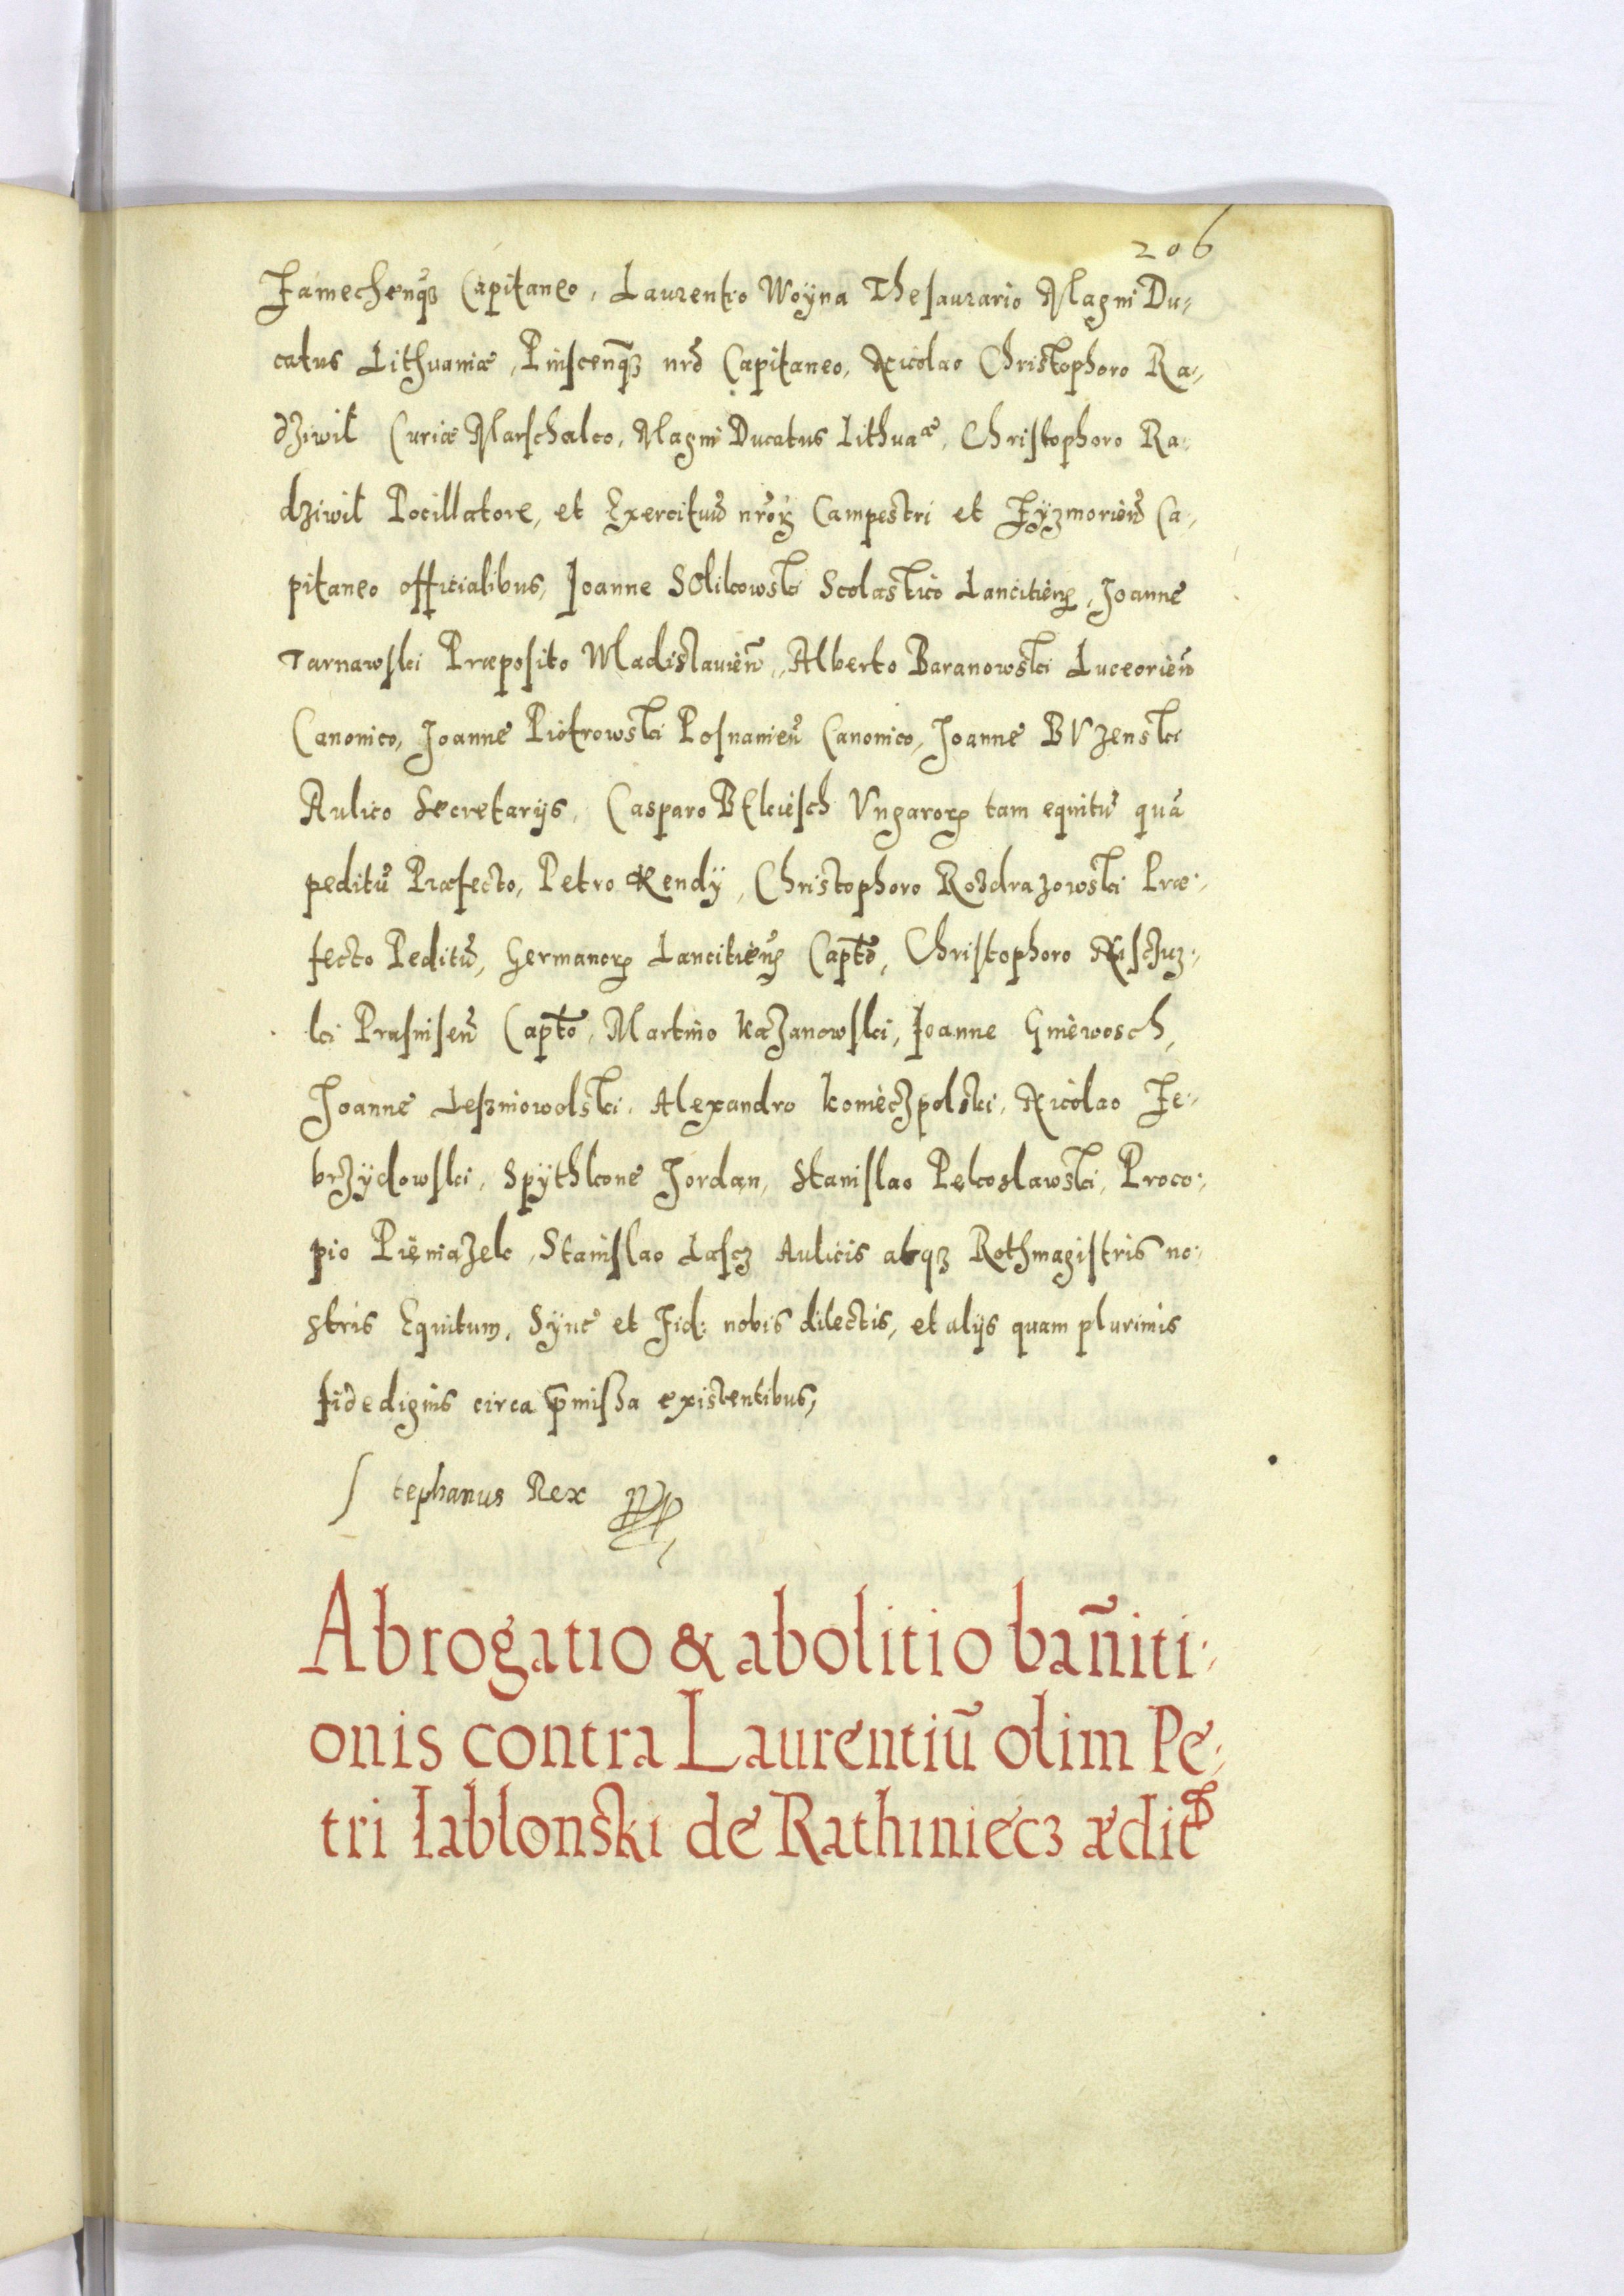 206
Zamechenqz Capitaneo, Laurentio Woÿna Thesaurario Magni Du-
catus Lithuaniæ, Pinscenqz nr̃o Capitaneo, Nicolao Christophoro Ra-
dziwil Curiæ Marschalco, Magni Ducatus Lithuaæ, Christophoro Ra-
dziwil Pocillatore, et Exercituũ nr̃oꝝ Campestri et Zyzmorieñ Ca-
pitaneo officialibus, Joanne SOlikowski Scolastico Lancitieñ, Joanne
Tarnawski Præposito Wladislavieñ, Alberto Baranowski Luceorieñ
Canonico, Joanne Piotrowski Posnanieñ Canonico, Joanne BVzenski
Aulico Secretarijs, Casparo BEkiesch Vngaroꝝ tam equitũ quã
peditũ Præfecto, Petro Kendÿ, Christophoro Rozdrazowski Præ-
fecto Peditũ, Germanoꝝ Lancitieñ Capto, Christophoro Nisczuz-
ki Prasniseñ Capto, Martino Kazanowski, Joanne Gniewosch,
Joanne Leszniowolski, Alexandro Konieczpolski, Nicolao Ze-
brzydowski, Spÿthkone Jordan, Stanislao Pękoslawski, Proco-
pio Pieniazek, Stanislao Lascz Aulicis atqz Rothmagistris no-
stris Equitum, Sÿnc et Fid: nobis dilectis, et alijs quam plurimis
fidedignis circa p̃missa existentibus,
Stephanus Rex
Abrogatio & abolitio bañiti-
onis contra Laurentiũ olim Pe-
tri Iablonski de Rathiniecz ædit